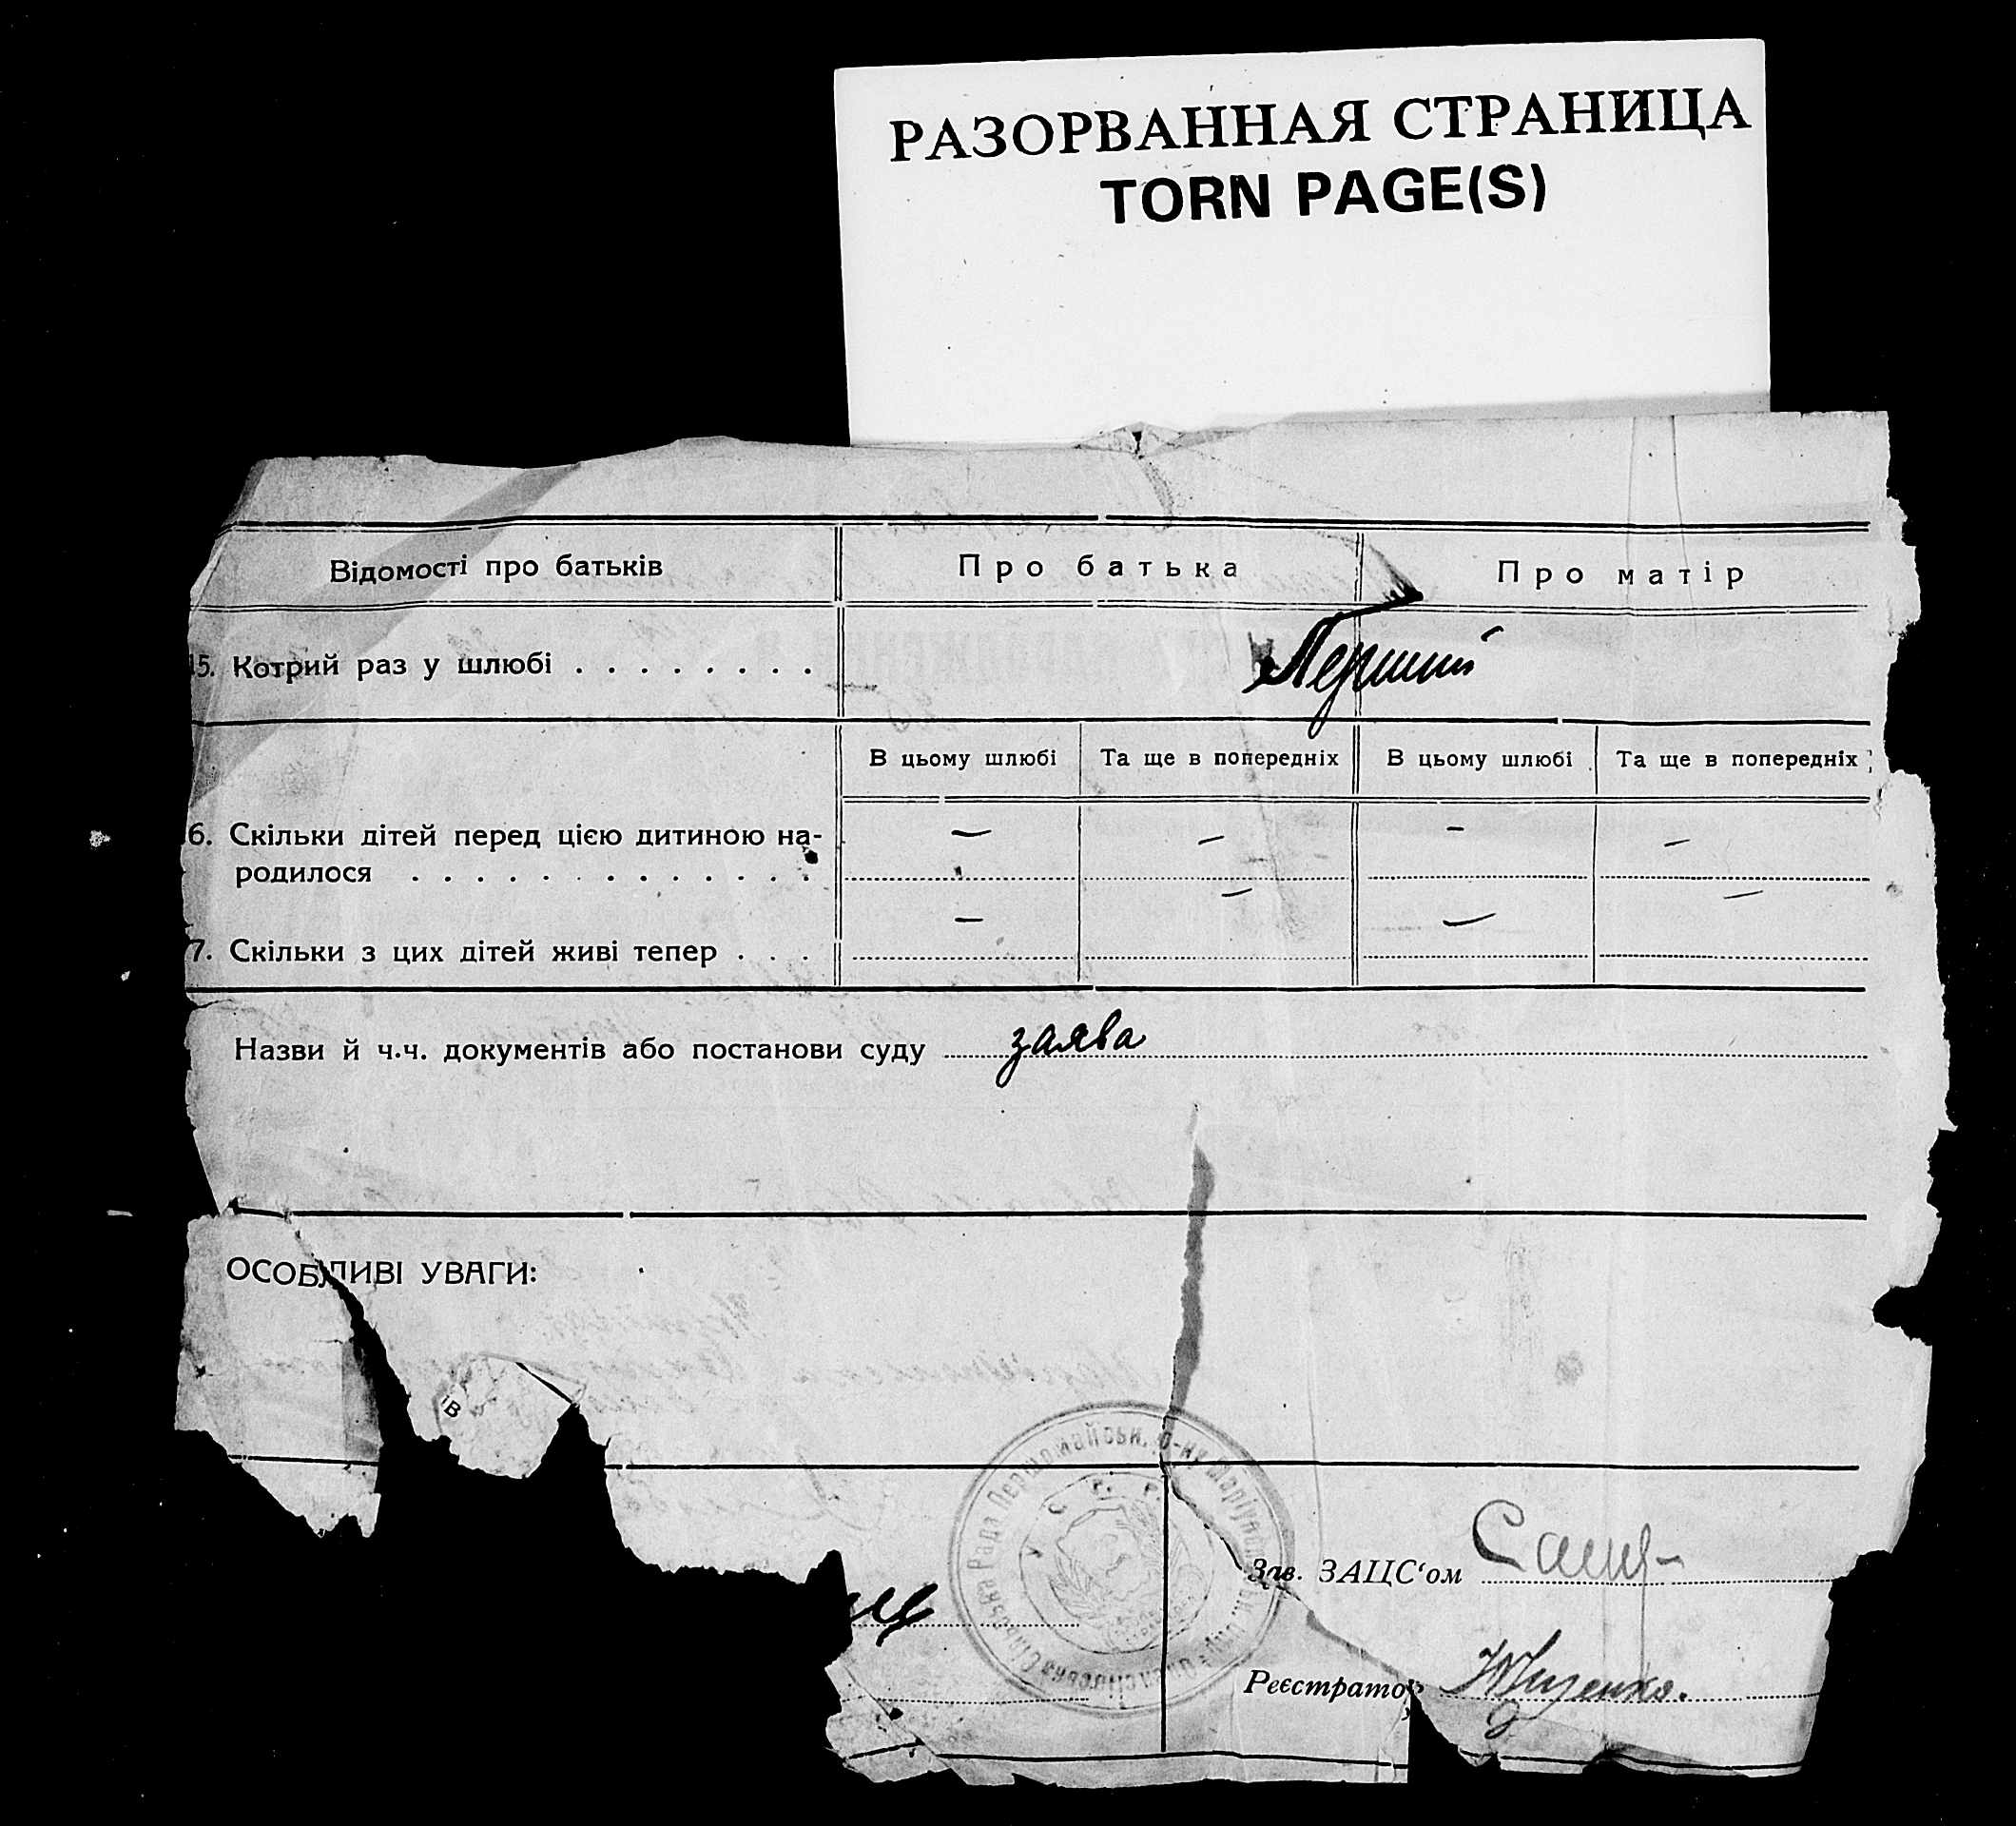 РАЗОРВАННАЯ СТРАНИЦА
TORN PAGE(S)
Відомості про батьків
Про батька
Про матір
15. Котрий раз у шлюбі . . . . . . . .
Перший
В цьому шлюбі
Та ще в попередніх
В цьому шлюбі
Та ще в попередніх
6. Скільки дітей перед цією дитиною на-
родилося . . . . . . . . . . . . .
— — — —
— — — —
7. Скільки з цих дітей живі тепер . . .
Назви й ч.ч. документів або постанови суду заява
ОСОБЛИВІ УВАГИ:
ів
Сільська Рада Першомайськ. р-ну Маріупольськ. окр.
У. С. С. Р.
Зав. ЗАЦС‘ом
Реєстратор